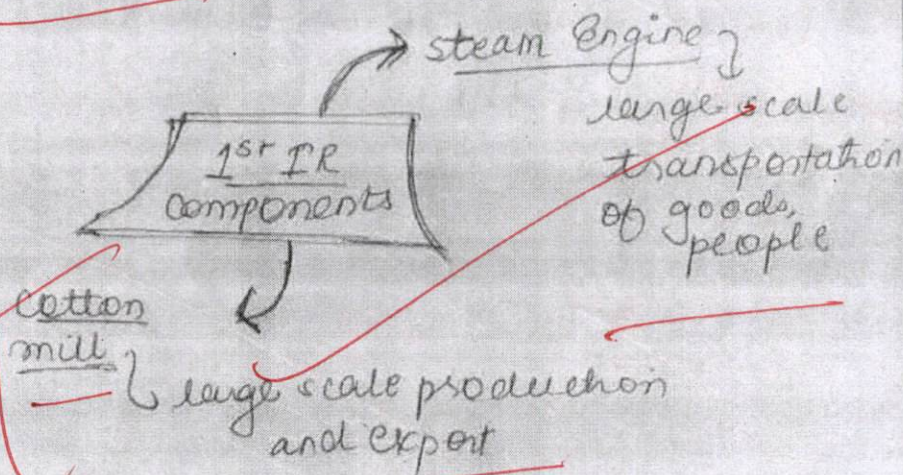 steam Engine
large scale
transportation
of goods,
people
1st IR
components
cotton
mill
large scale production
and export